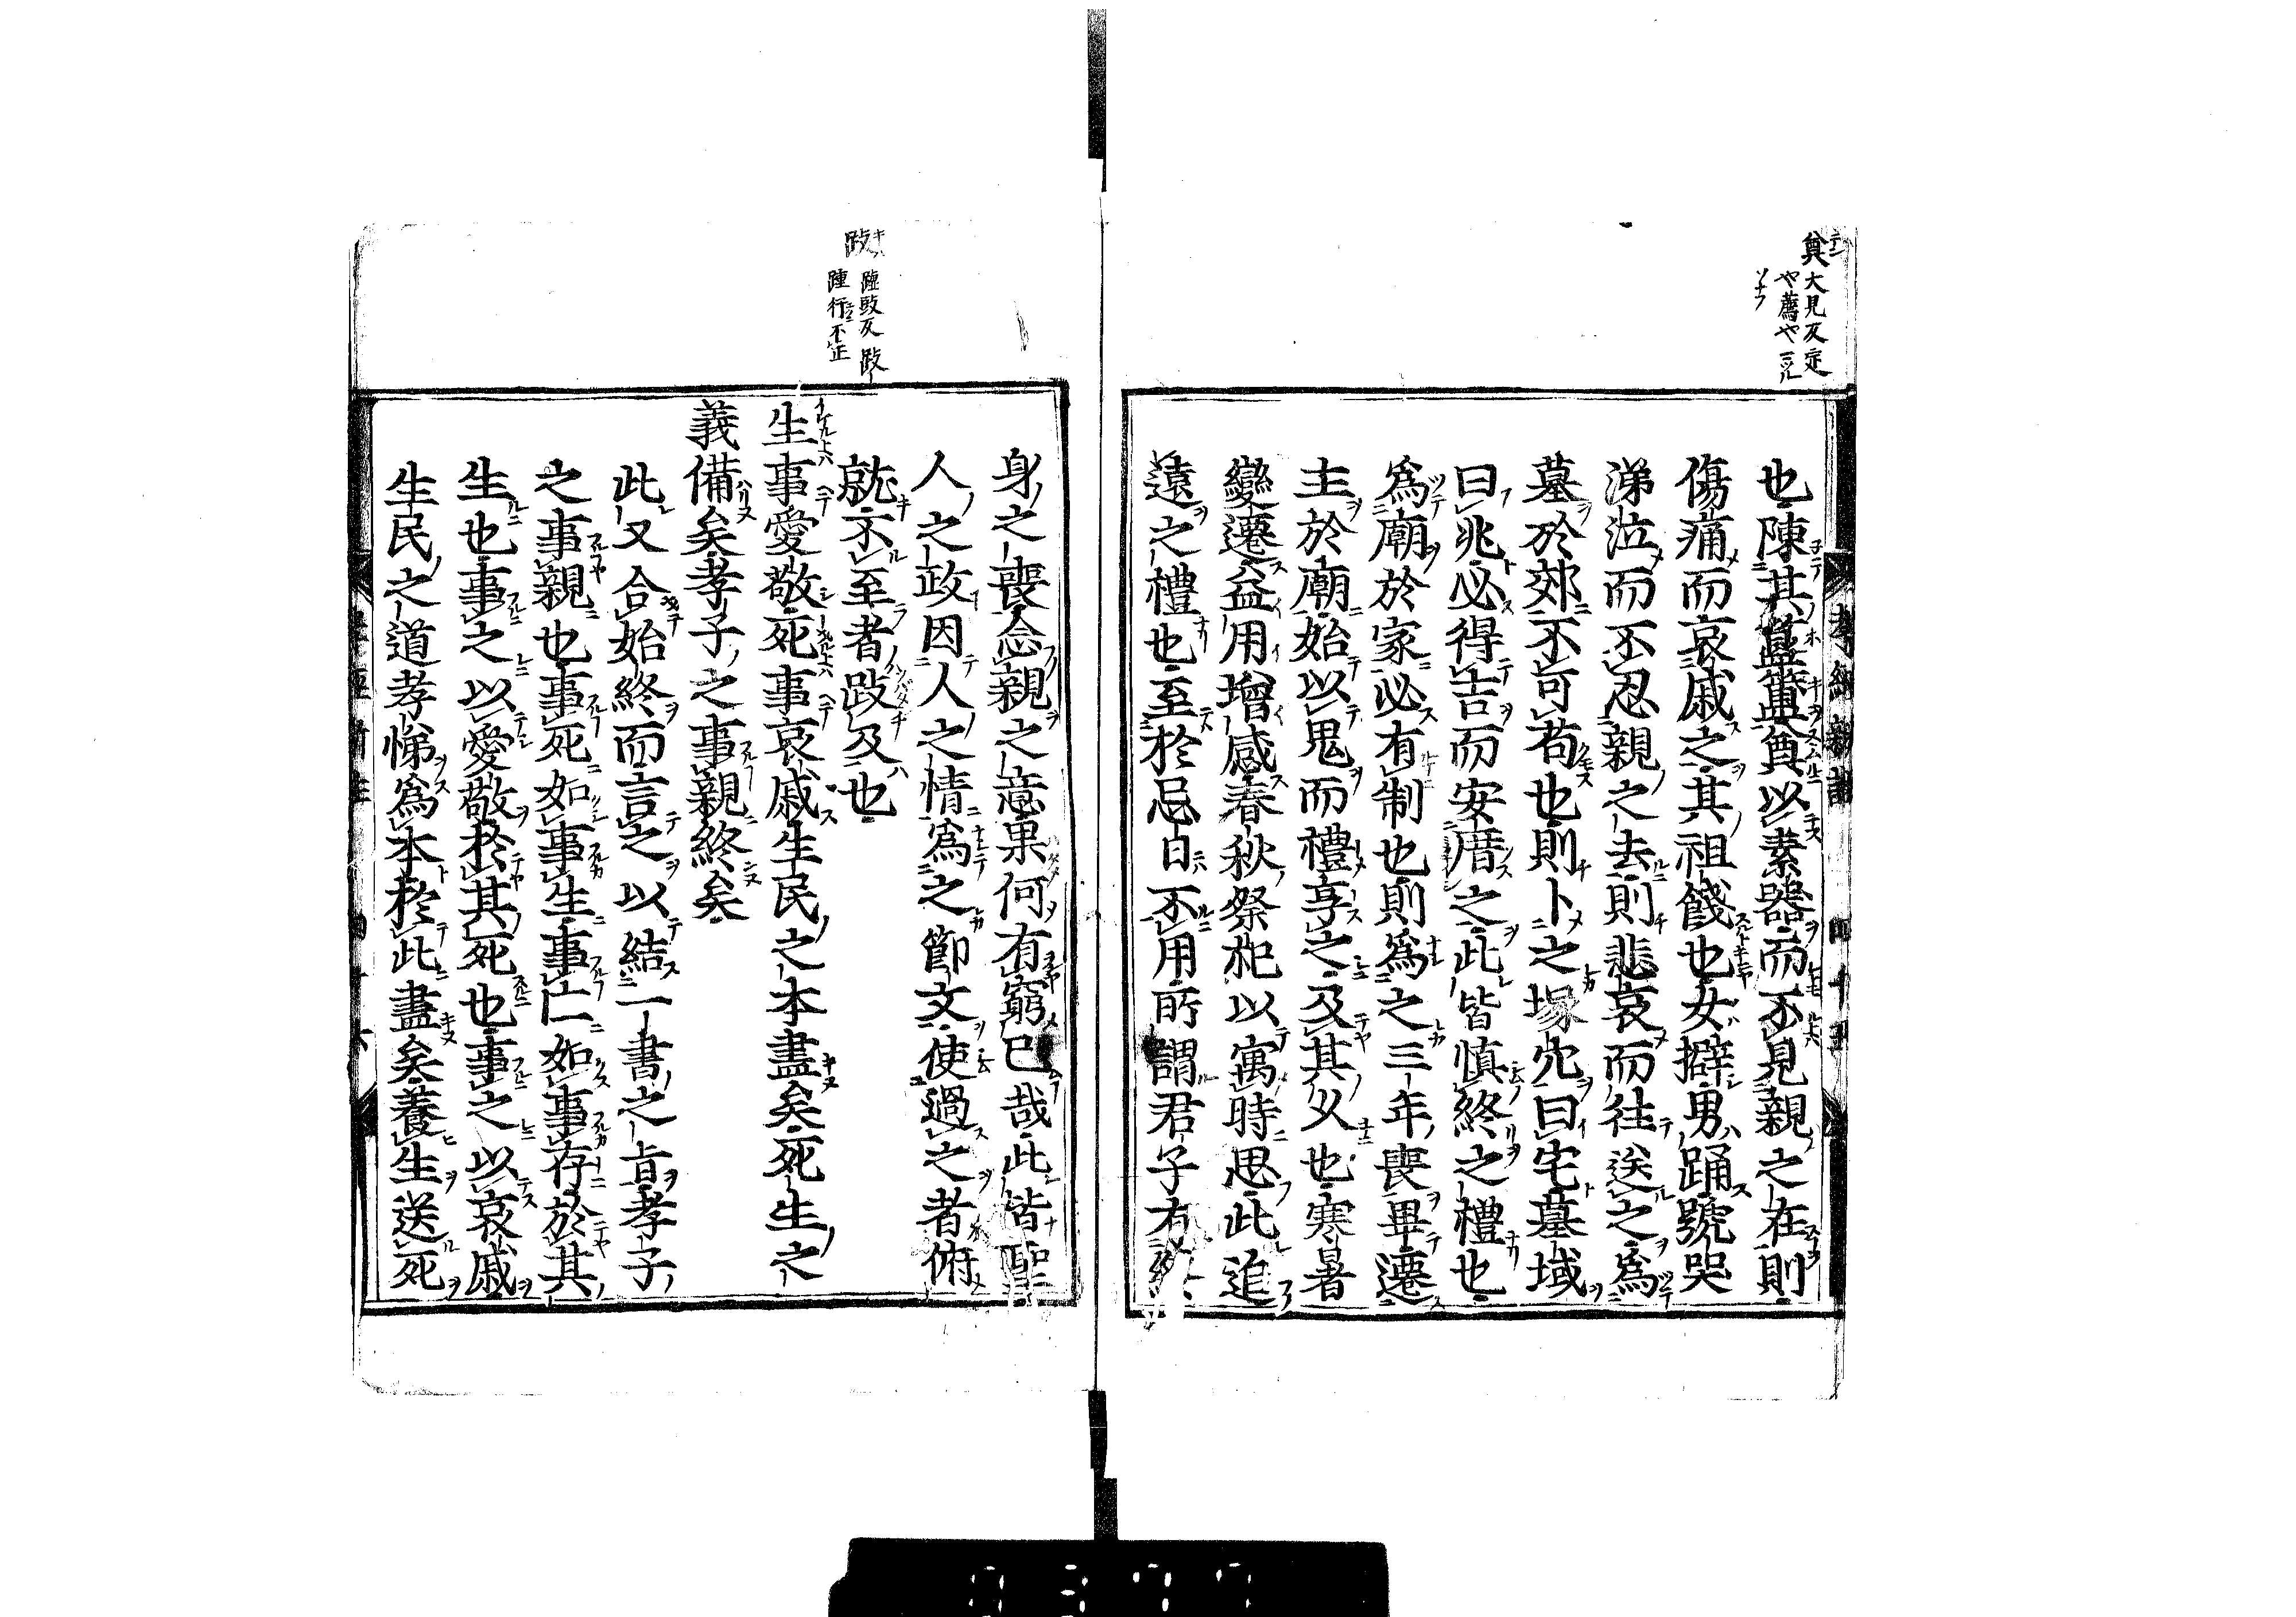 奠大見反定
や薦や
也陳其簠簋奠以素器而不見親之在則
傷痛而哀戚之其祖餞也女擗男踊號哭
涕泣而不忍親之去則悲哀而往送之爲
墓於郊不可苟也則卜之塚穴曰宅墓域
曰兆必得吉而安厝之此皆慎終之禮也
爲廟於家必有制也則爲之三年喪畢遷
主於廟始以鬼而禮享之及其乆也寒暑
變遷益用增感春秋祭祀以寓時思此追
遠之禮也至於忌日不用所謂君子有終
跂
跂
踵行不正
身之喪念親之意果何有窮已哉此皆聖
人之政因人之情爲之節文使過之者俯
就不至者跂及也
生事愛敬死事哀戚生民之本盡矣死生之
義備矣孝子之事親終矣
此又合始終而言之以結一書之旨孝子
之事親也事死如事生事亡如事存於其
生也事之以愛敬於其死也事之以哀戚
生民之道孝悌爲本於此盡矣養生送死